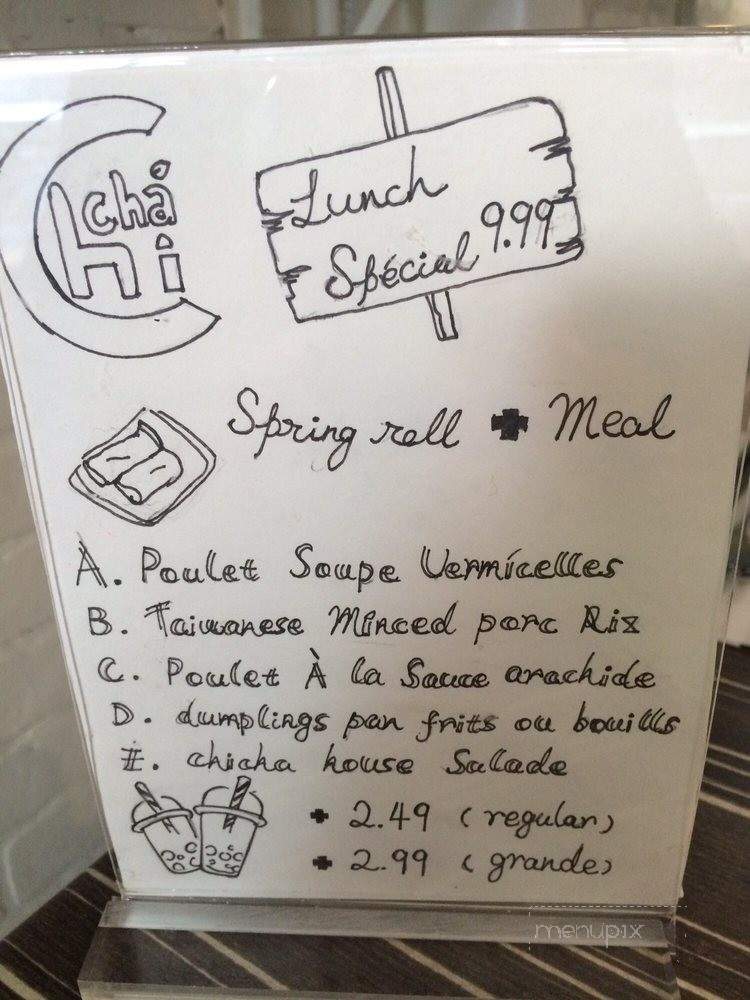 Chi cha
Lunch
Spécial 9.99
Spring roll + Meal
A. Poulet Soupe Vermicelles
B. Taiwanese Minced porc Riz
C. Poulet À la Sauce arachide
D. dumplings pan frits ou bouills
E. chicha house Salade
+ 2.49 (regular)
+ 2.99 (grande)
menupix